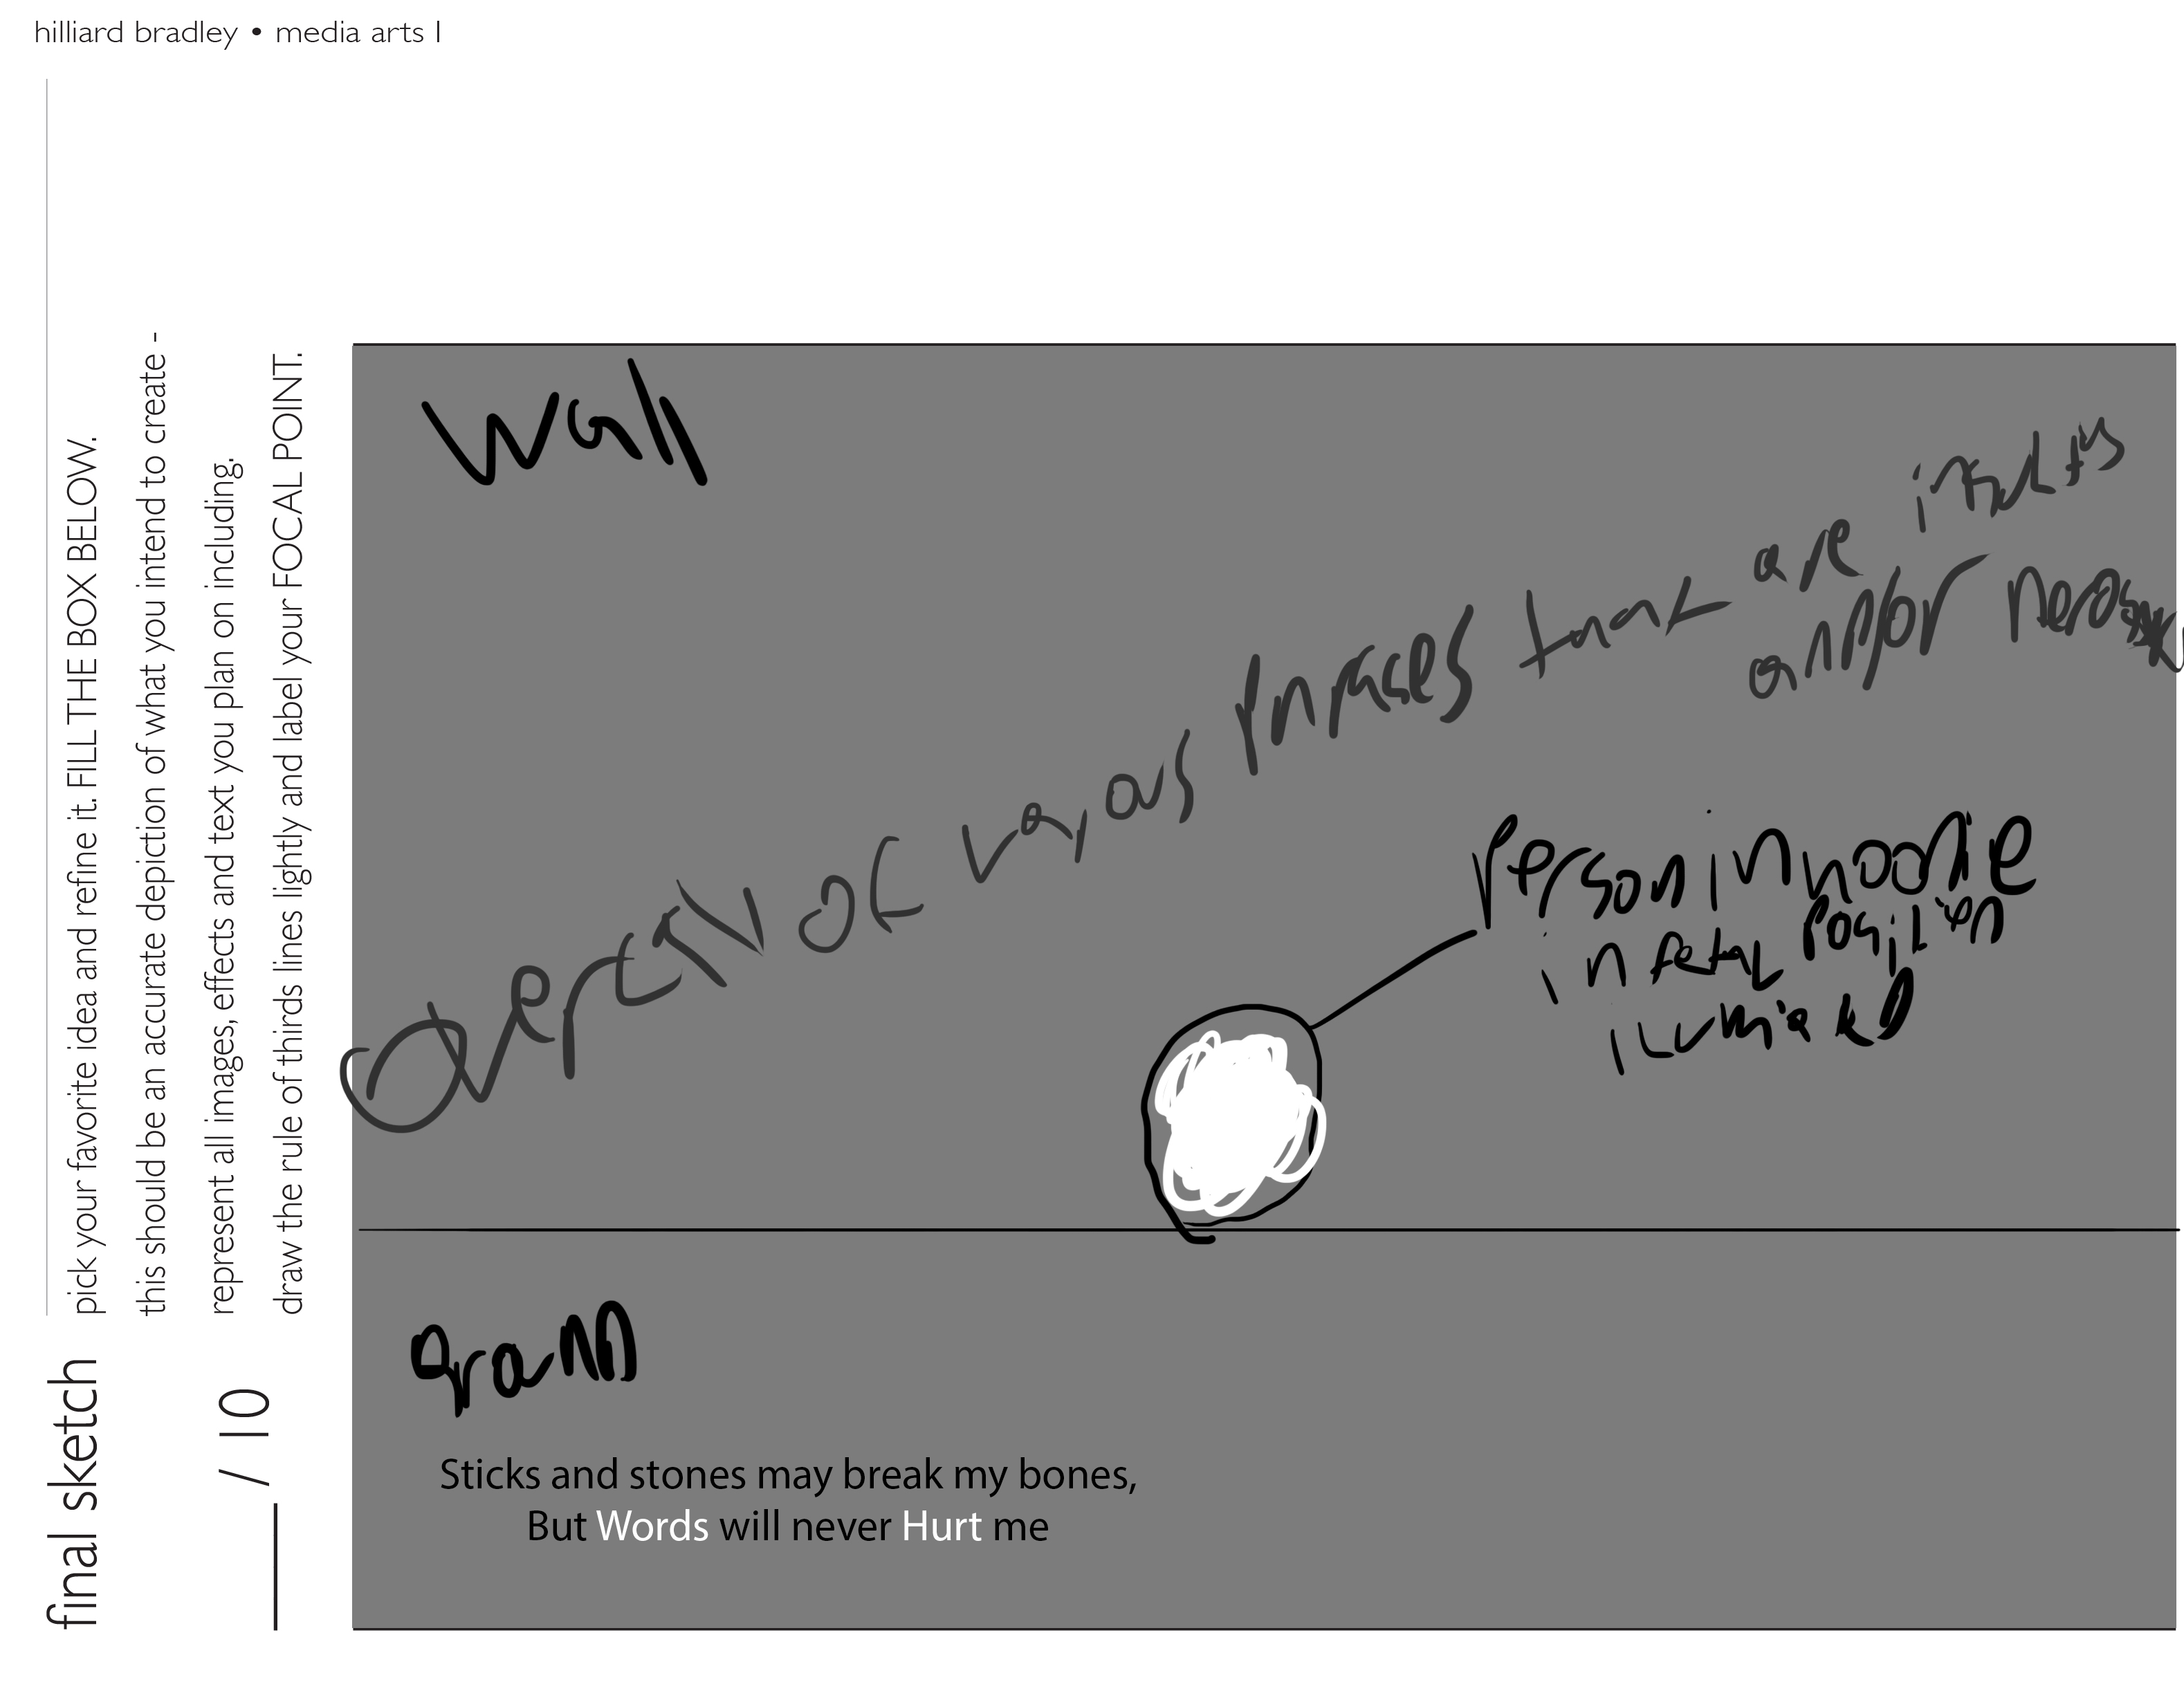 hilliard bradley • media arts I
final sketch
____ / 10
pick your favorite idea and refine it. FILL THE BOX BELOW.
this should be an accurate depiction of what you intend to create -
represent all images, effects and text you plan on including.
draw the rule of thirds lines lightly and label your FOCAL POINT.
Wall
overlay of various phrases that are insults
and/or mean
Person in hoodie
in fetal position
Sticks and stones may break my bones,
But Words will never Hurt me